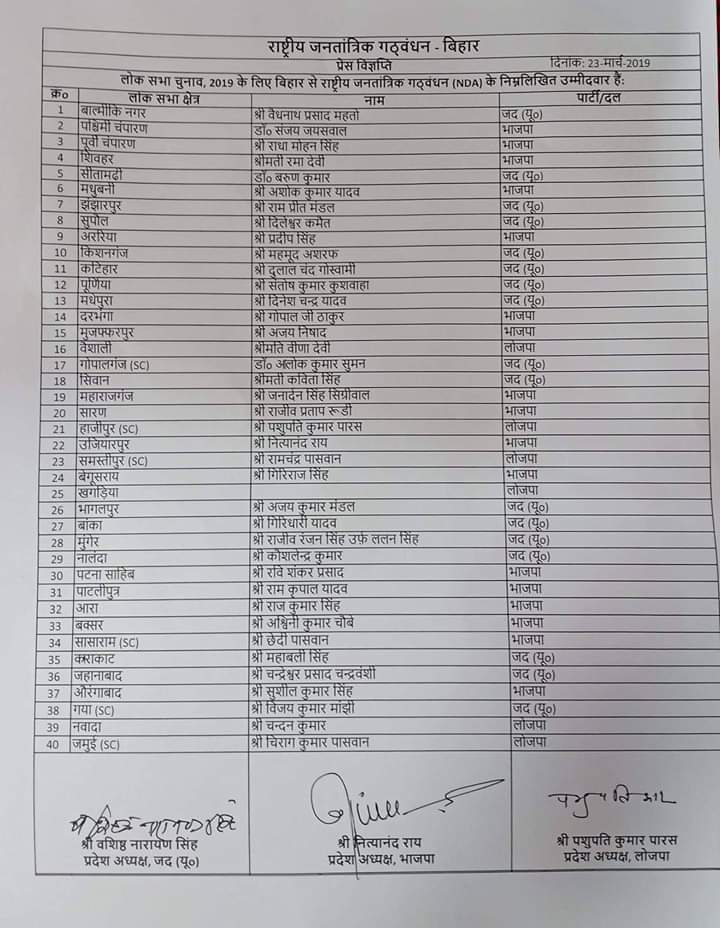 राष्ट्रीय जनतांत्रिक गठ्वंधन - बिहार
प्रेस विज्ञप्ति दिनांक: 23-मार्च-2019
लोक सभा चुनाव, 2019 के लिए बिहार से राष्ट्रीय जनतांत्रिक गठ्वंधन (NDA) के निम्नलिखित उम्मीदवार हैं:
क्र० लोक सभा क्षेत्र नाम पार्टी/दल
1 बाल्मीकि नगर श्री वैधनाथ प्रसाद महतो जद (यू०)
2 पश्चिमी चंपारण डॉ० संजय जयसवाल भाजपा
3 पूर्वी चंपारण श्री राधा मोहन सिंह भाजपा
4 शिवहर श्रीमती रमा देवी भाजपा
5 सीतामढ़ी डॉ० बरुण कुमार जद (यू०)
6 मधुबनी श्री अशोक कुमार यादव भाजपा
7 झंझारपुर श्री राम प्रीत मंडल जद (यू०)
8 सुपौल श्री दिलेश्वर कमैत जद (यू०)
9 अररिया श्री प्रदीप सिंह भाजपा
10 किशनगंज श्री महमूद अशरफ जद (यू०)
11 कटिहार श्री दुलाल चंद गोस्वामी जद (यू०)
12 पूर्णिया श्री संतोष कुमार कुशवाहा जद (यू०)
13 मधेपुरा श्री दिनेश चन्द्र यादव जद (यू०)
14 दरभंगा श्री गोपाल जी ठाकुर भाजपा
15 मुजफ्फरपुर श्री अजय निषाद भाजपा
16 वैशाली श्रीमति वीणा देवी लोजपा
17 गोपालगंज (SC) डॉ० अलोक कुमार सुमन जद (यू०)
18 सिवान श्रीमती कविता सिंह जद (यू०)
19 महाराजगंज श्री जनार्दन सिंह सिग्रीवाल भाजपा
20 सारण श्री राजीव प्रताप रूडी भाजपा
21 हाजीपुर (SC) श्री पशुपति कुमार पारस लोजपा
22 उजियारपुर श्री नित्यानंद राय भाजपा
23 समस्तीपुर (SC) श्री रामचंद्र पासवान लोजपा
24 बेगूसराय श्री गिरिराज सिंह भाजपा
25 खगड़िया लोजपा
26 भागलपुर श्री अजय कुमार मंडल जद (यू०)
27 बांका श्री गिरिधारी यादव जद (यू०)
28 मुंगेर श्री राजीव रंजन सिंह उर्फ़ ललन सिंह जद (यू०)
29 नालंदा श्री कौशलेन्द्र कुमार जद (यू०)
30 पटना साहिब श्री रवि शंकर प्रसाद भाजपा
31 पाटलीपुत्र श्री राम कृपाल यादव भाजपा
32 आरा श्री राज कुमार सिंह भाजपा
33 बक्सर श्री अश्विनी कुमार चौबे भाजपा
34 सासाराम (SC) श्री छेदी पासवान भाजपा
35 काराकाट श्री महाबली सिंह जद (यू०)
36 जहानाबाद श्री चन्द्रेश्वर प्रसाद चन्द्रवंशी जद (यू०)
37 औरंगाबाद श्री सुशील कुमार सिंह भाजपा
38 गया (SC) श्री विजय कुमार मांझी जद (यू०)
39 नवादा श्री चन्दन कुमार लोजपा
40 जमुई (SC) श्री चिराग कुमार पासवान लोजपा
श्री वशिष्ठ नारायण सिंह श्री नित्यानंद राय श्री पशुपति कुमार पारस
प्रदेश अध्यक्ष, जद (यू०) प्रदेश अध्यक्ष, भाजपा प्रदेश अध्यक्ष, लोजपा